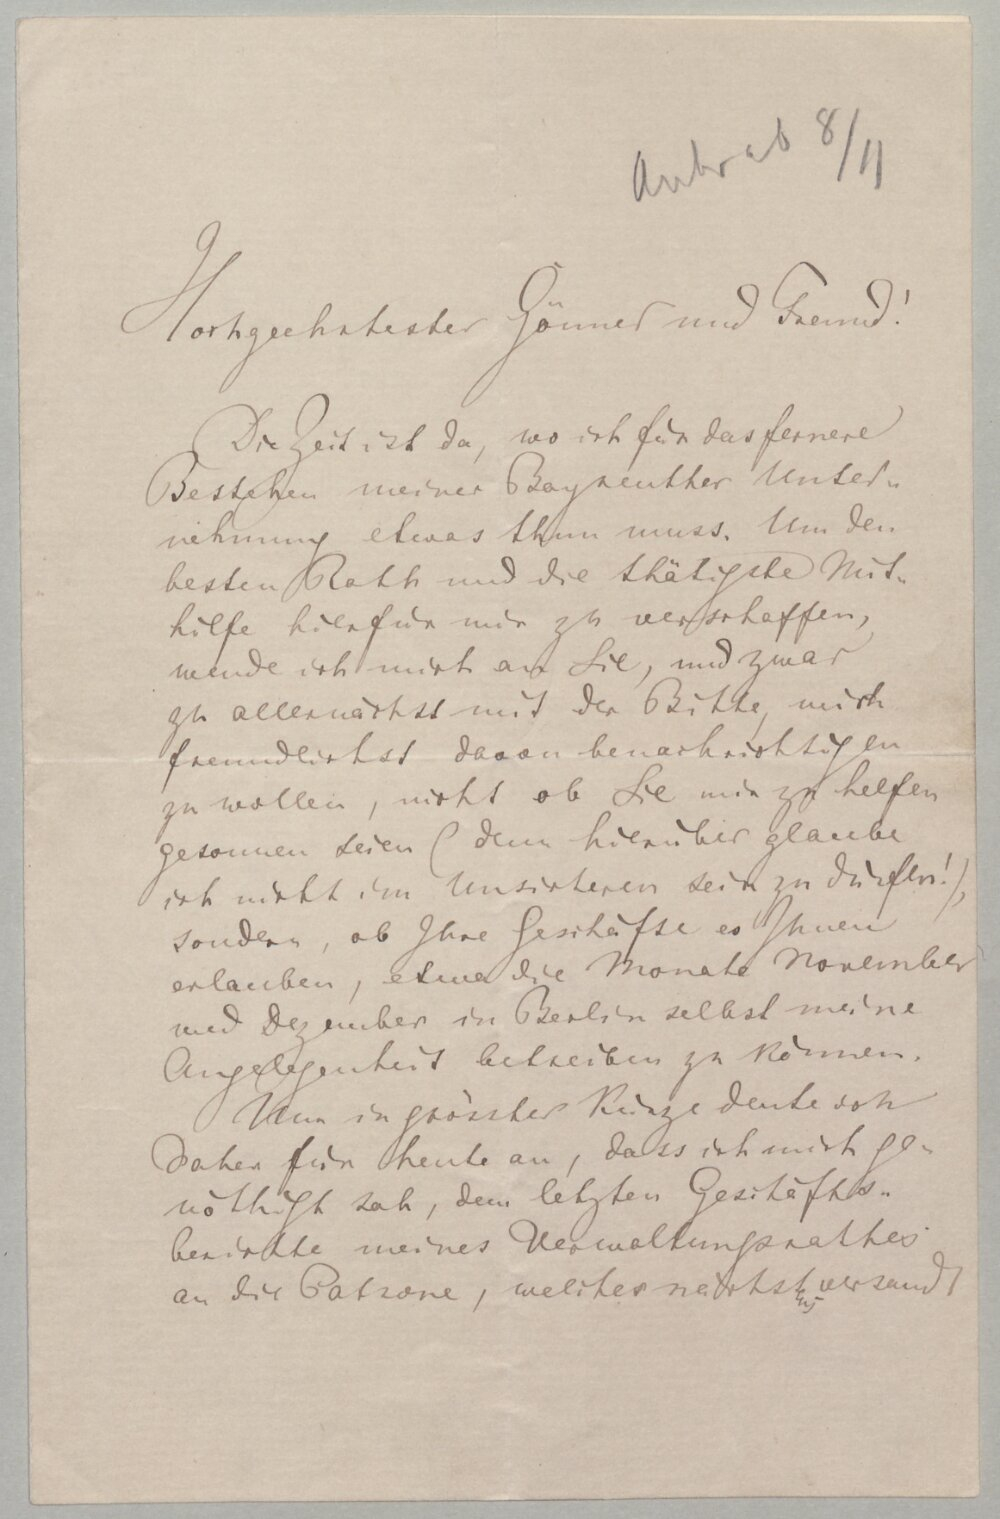 Antw ab 8/11
Hochgeehrtester Gönner und Freund!
Die Zeit ist da, wo ich für das fernere
Bestehen meiner Bayreuther Unter-
nehmung etwas thun muss. Um den
besten Rath und die thätigste Mit-
hilfe hierfür mir zu verschaffen,
wende ich mich an Sie, und zwar
zu allernächst mit der Bitte, mich
freundlichst davon benachrichtigen
zu wollen, nicht ob Sie mir zu helfen
gesonnen seien (denn hierüber glaube
ich nicht im Unsicheren sein zu dürfen!),
sondern, ob Ihre Geschäfte es Ihnen
erlauben, etwa die Monate November
und Dezember in Berlin selbst meine
Angelegenheit betreiben zu können.
Nur in grösster Kürze deute ich
daher für heute an, dass ich mich ge-
nöthigt sah, dem letzten Geschäfts-
berichte meines Verwaltungsrathes
an die Patrone, welcher nächstens versandt